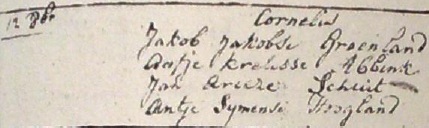 12 8br Cornelis
Jakob Jakobse Groenland
Aafje Krelisse Abbink
Jan Arieze Schuit
Antje Symense Hoogland